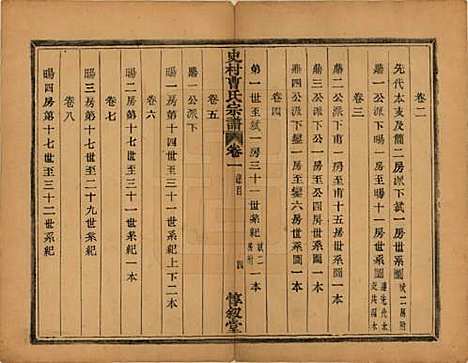 卷二
先代本支及龍二房派下試一房世系圖試二房附
派下暘一房世系圖
卷三
鼎一公派下至甫十五房世系圖一本
鼎三公派下至公四房世系圖一本
鼎四公派下鑾一房至鑾六房世系圖一本
卷四
第一世至試一房三十一世系紀試二房附一本
史村曹氏宗譜
卷一
總目
四
惇敘堂
卷五
鼎一公派下
暘一房第十七世至三十一世系紀上下二本
卷六
暘二房第十七世至三十一世系紀一本
卷七
暘三房第十七世至二十九世系紀一本
卷八
暘四房第十七世至三十二世系紀一本